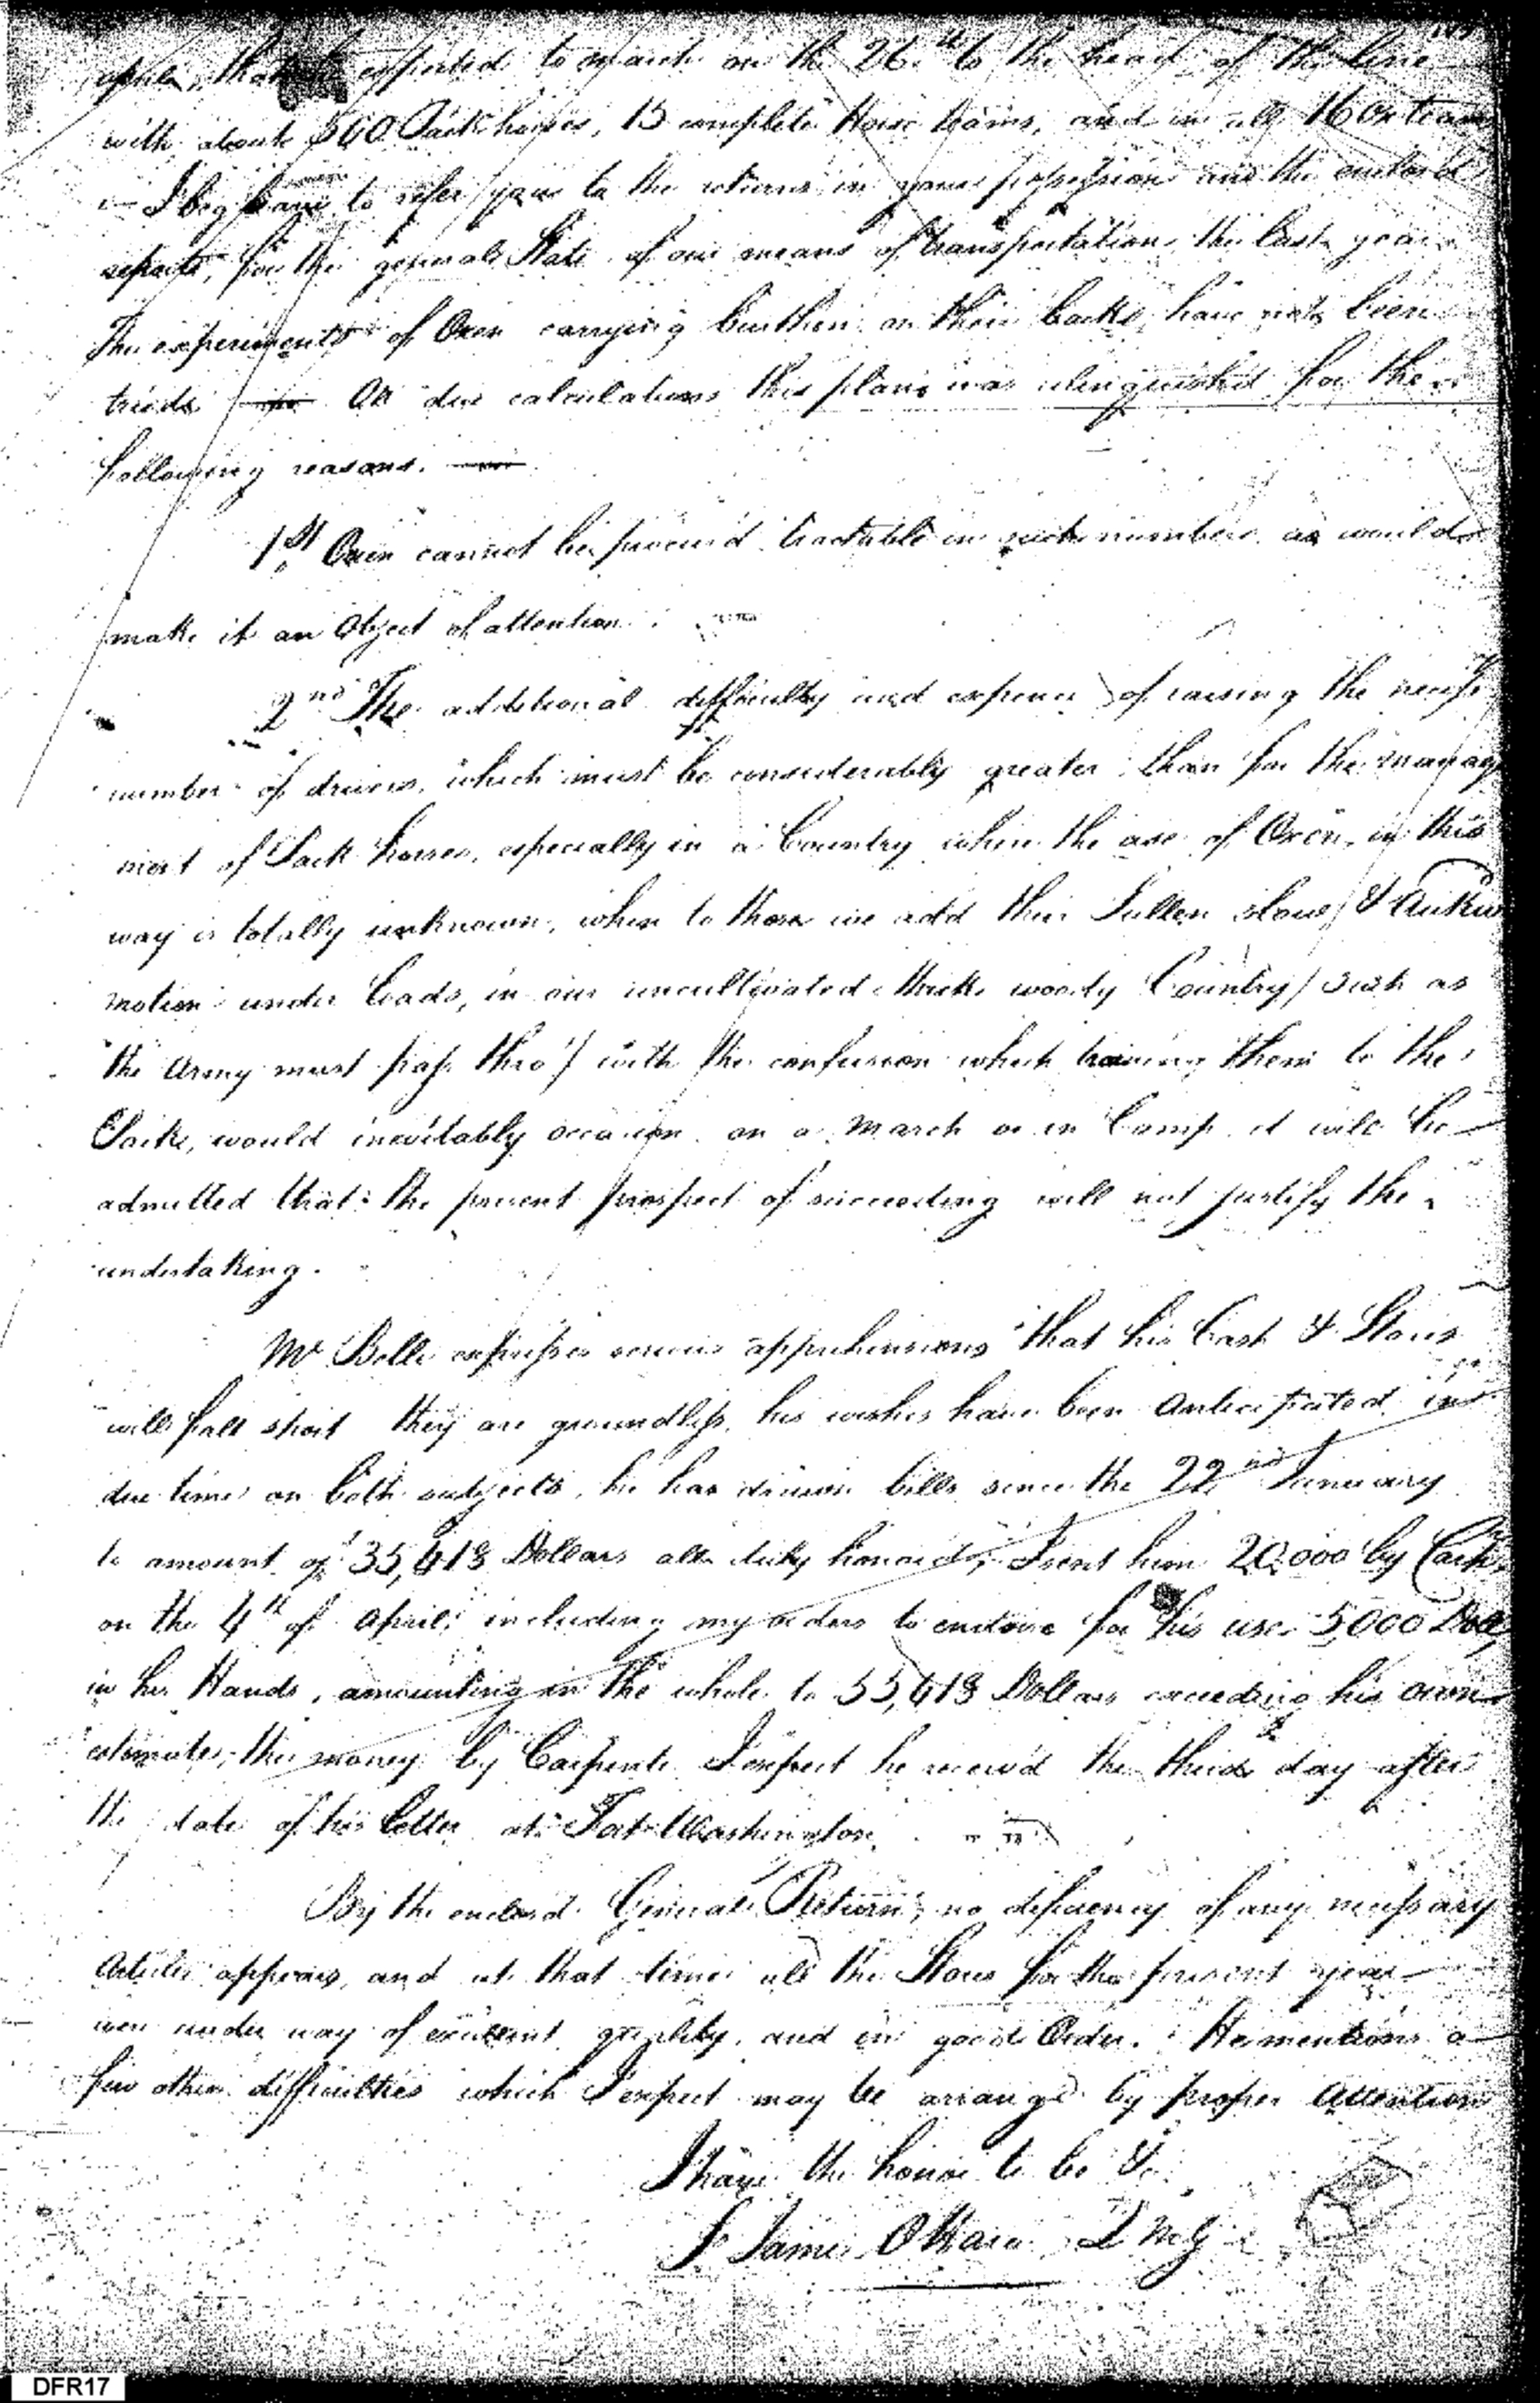 that he expected to march on the 26th to the head of the line
with about 560 Packhorses, 15 complete Horse teams, and in all 16 Ox teams
I beg leave to refer you to the returns in your possession and the enclosed
reports, for the general State of our means of transportation the last year
The experiments of Oxen carrying burthen on their backs, have not been
tried On due calculations this plan was relinquished for the
following reasons.
1st Oxen cannot be procured tractable in such numbers as would
make it an Object of attention.
2nd The additional difficulty and expence of raising the necessy
number of drivers, which must be considerably greater than for the manage
ment of Pack horses, especially in a Country where the use of Oxen in this
way is totally unknown, when to these we add their Sullen slow, &
motion under loads, in our uncultivated thick woody Country / such as
the Army must pass thro' / with the confusion which training them to the
Packs, would inevitably occasion on a March or in Camp it will be
admitted that the present prospect of succeeding will not justify the
undertaking.
Mr Belli expresses serious apprehensions that his Cash & Stores
will fall short they are groundless, his wishes have been anticipated in
due time on both subjects, he has drawn bills since the 22nd January
to amount of 35,418 Dollars all duly honored; I sent him 20,000 by Carpr
on the 4th of April including my orders to endorse for his use 5000 Dolls
in her Hands, amounting in the whole to 55,418 Dollars exceeding his own
estimates, the money by Carpenter I expect he received the third day after
the date of his letter at Fort Washington.
By the enclosed General Return, no deficiency of any necessary
Articles appears, and at that time all the Stores for the present year
were under way of excellent quality, and in good Order. He mentions a
few other difficulties which I expect may be arranged by proper attention
I have the honor to be &c
James OHara Q M G
DFR17